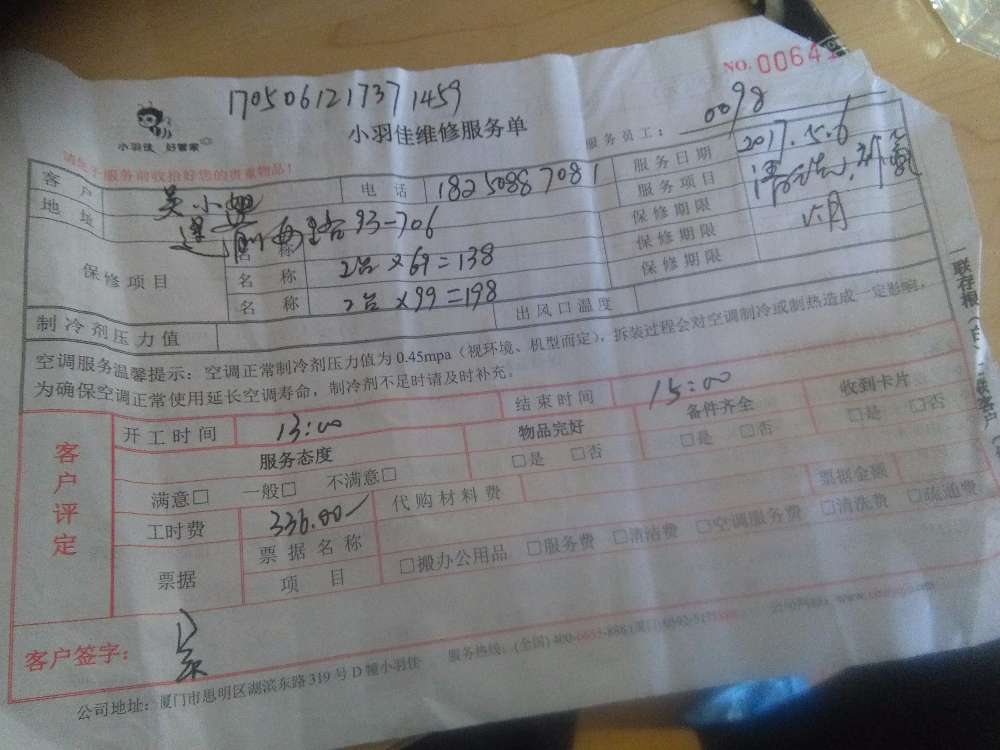 NO.0064
170506121737 1459
小羽佳 好管家
小羽佳维修服务单
服务员工: 0098
服务前收拾好您的贵重物品!
客户 吴小姐 电话 18250887081 服务日期 2017.5.6
地址 93-706 服务项目 清洗
保修项目 名称 保修期限
名称 2台×69=138 保修期限 月
名称 2台×99=198 保修期限
制冷剂压力值 出风口温度
空调服务温馨提示:空调正常制冷剂压力值为0.45mpa(视环境、机型而定),拆装过程会对空调制冷或制热造成一定影响,
为确保空调正常使用延长空调寿命,制冷剂不足时请及时补充。
客户评定
开工时间 13:00 结束时间 15:00
服务态度 物品完好 备件齐全 收到卡片
满意□ 一般□ 不满意□ □是 □否 □是 □否 □是 □否
工时费 336.00 代购材料费 票据金额
票据 票据名称
项目 □搬办公用品 □服务费 □清洁费 □空调服务费 □清洗费 □疏通费
客户签字:
公司地址:厦门市思明区湖滨东路319号D幢小羽佳 服务热线:(全国)400-
一联存根